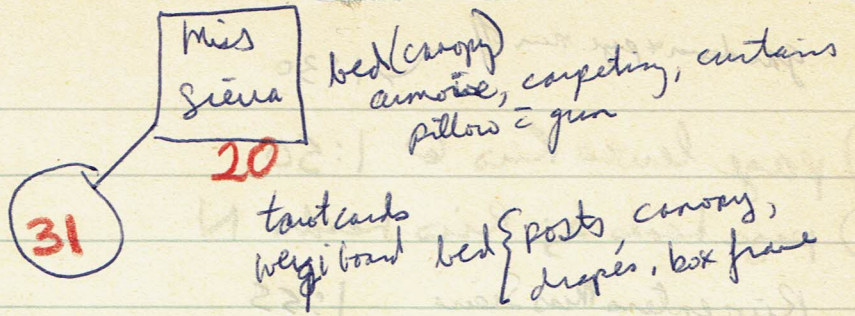 Miss
Sierra
20
31
bed (canopy)
armoire, carpeting, curtains
pillow = gun
tarot cards
weegi board
bed { posts, canopy,
drapes, box frame